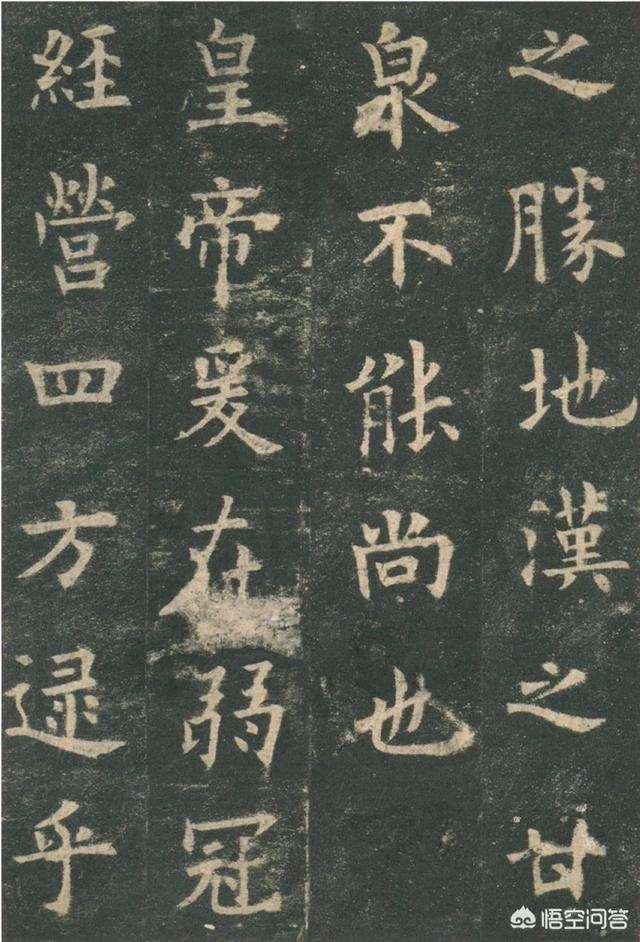 之勝地漢之甘
泉不能尚也
皇帝爰在弱冠
經營四方逯乎
悟空问答